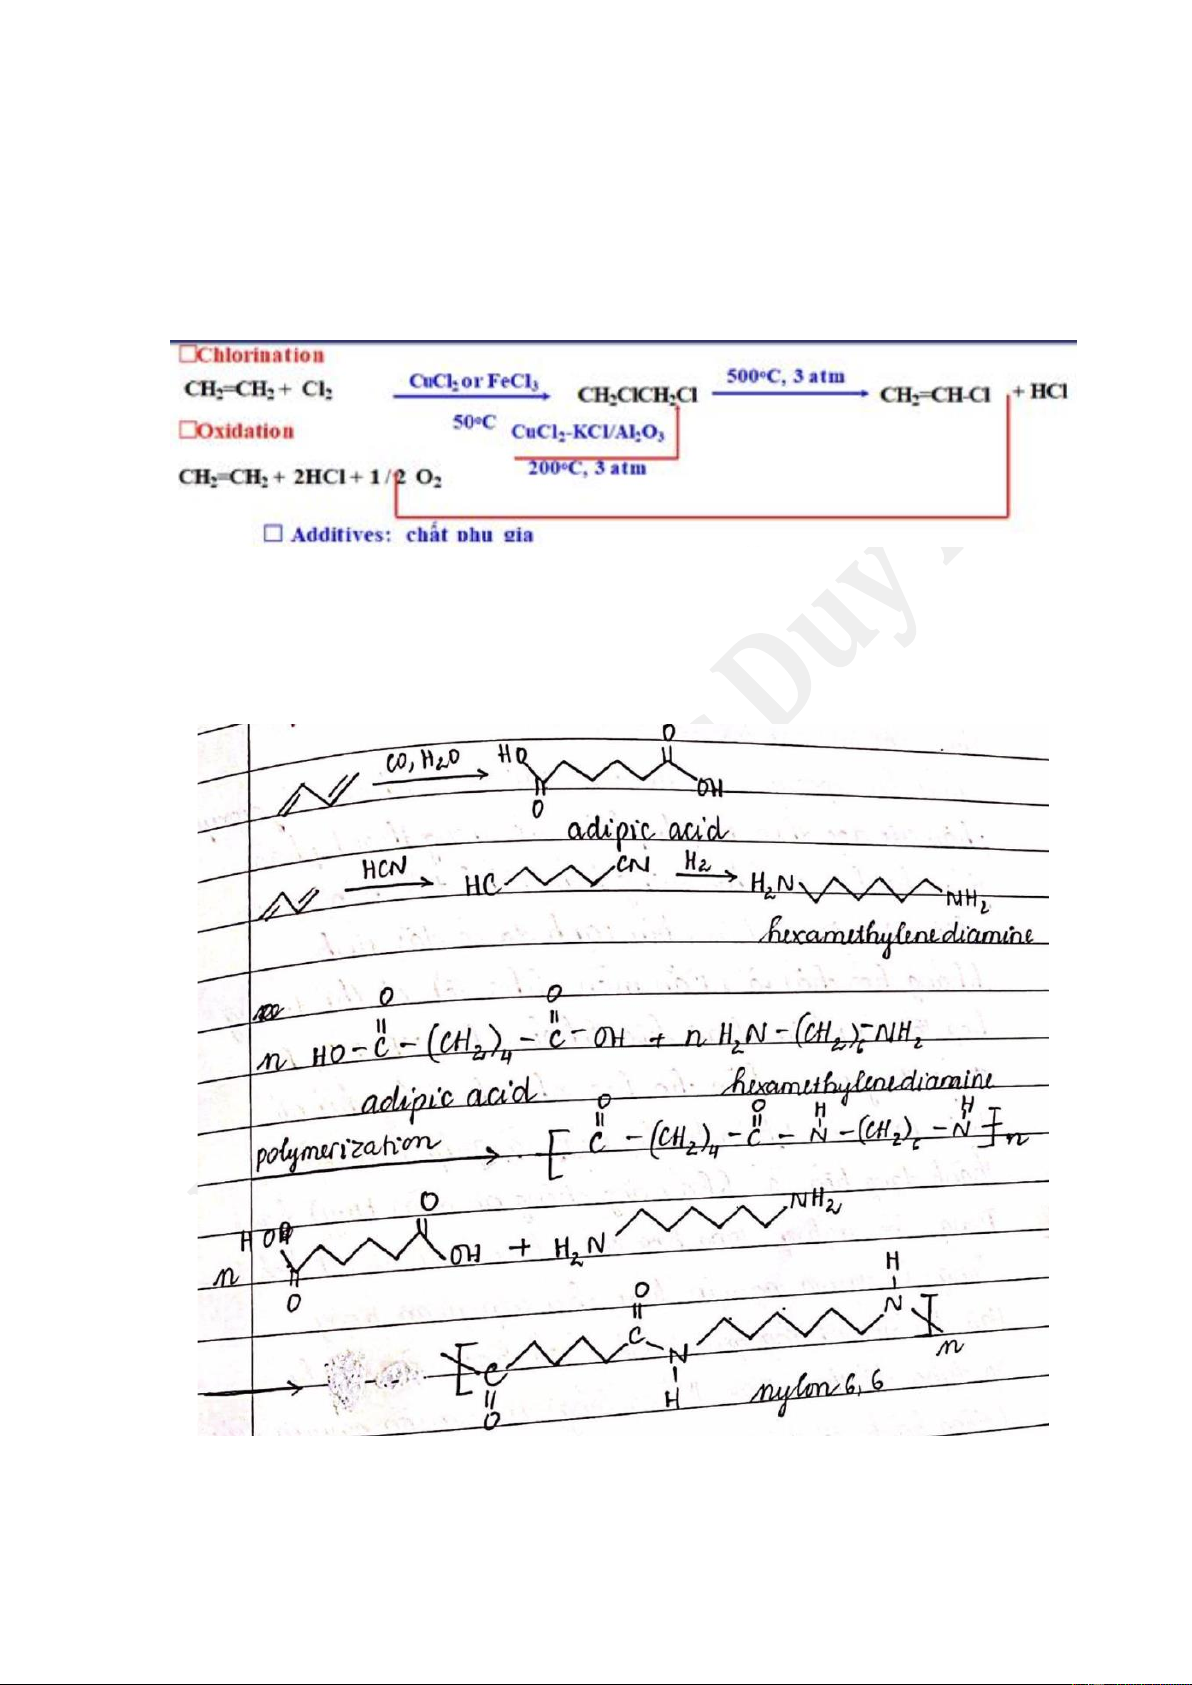 □Chlorination
CH₂=CH₂ + Cl₂ CuCl₂ or FeCl₃ 50°C CH₂ClCH₂Cl 500°C, 3 atm CH₂=CH-Cl + HCl
□Oxidation CuCl₂-KCl/Al₂O₃
CH₂=CH₂ + 2HCl + 1/2 O₂ 200°C, 3 atm
□ Additives: chất phụ gia
Duy
CO, H₂O HO O O OH
adipic acid
HCN HC CN H₂ H₂N NH₂
hexamethylenediamine
O O
n HO - C - (CH₂)₄ - C - OH + n H₂N - (CH₂)₆ - NH₂
adipic acid hexamethylenediamine
O O H H
polymerization [ C - (CH₂)₄ - C - N - (CH₂)₆ - N ]n
HO O NH₂
n O OH + H₂N
O H
[ C C N N ]n
O H nylon 6,6